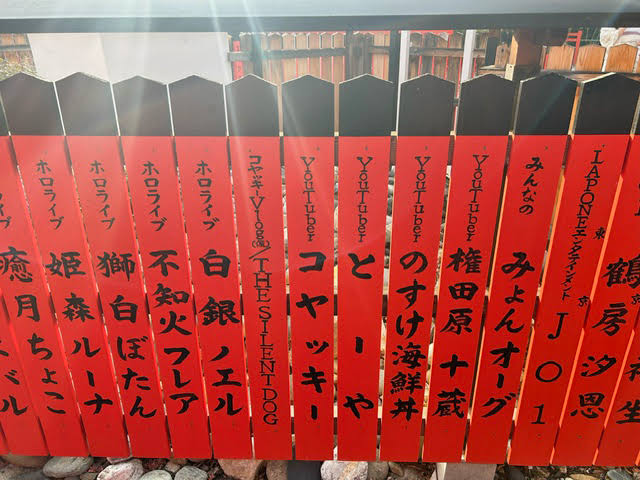 東京
LAPONEエンタテインメント
JO1
鶴房汐恩
みんなの
みょんオーグ
YouTuber
権田原十蔵
YouTuber
のすけ海鮮丼
YouTuber
とーや
YouTuber
コヤッキー
コヤッキーVlog(仮)/THE SILENT DOG
ホロライブ
白銀ノエル
ホロライブ
不知火フレア
ホロライブ
獅白ぼたん
ホロライブ
姫森ルーナ
ホロライブ
癒月ちょこ
バル